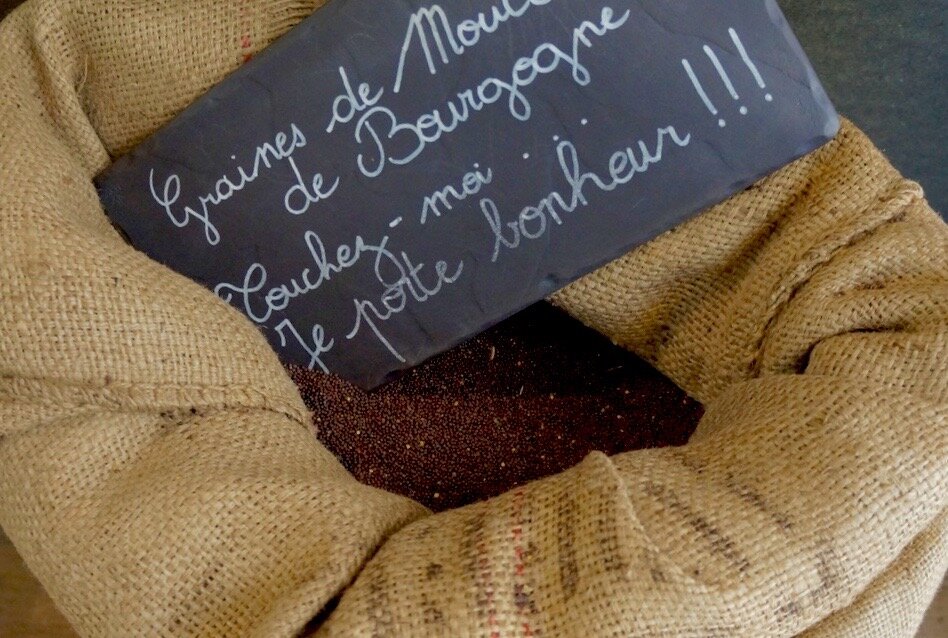 Graines de Mout
de Bourgogne
Touchez-moi...
Je porte bonheur !!!